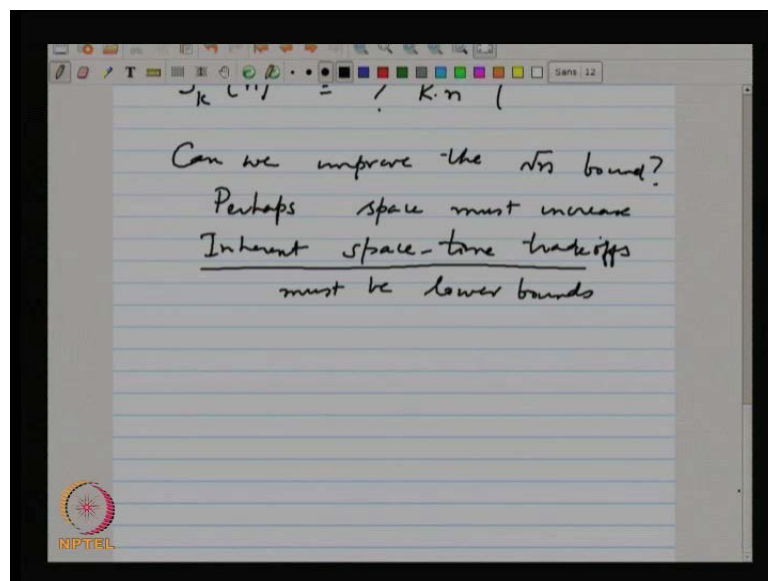 Sans 12
= ? k.n
Can we improve the √n bound?
Perhaps space must increase
Inherent space-time tradeoffs
must be lower bounds
NPTEL